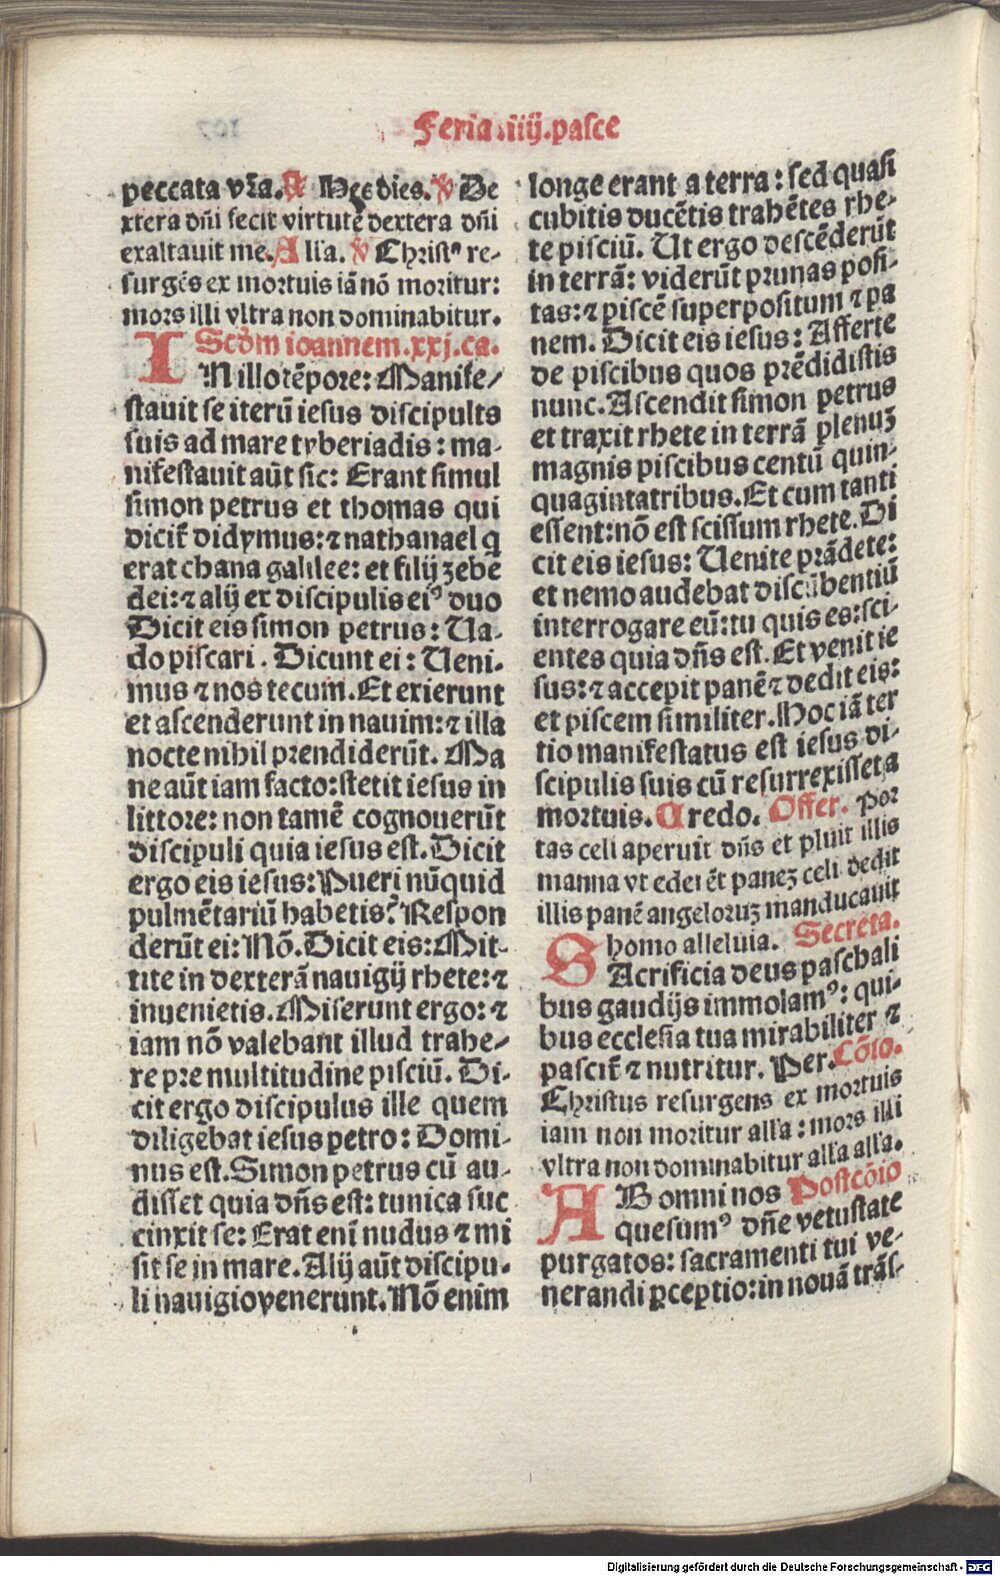 Feria.iiij.pasce
peccata vr̃a. ℟ Hec dies. ℣ De
xtera dñi fecit virtutẽ dextera dñi
exaltauit me. Alľa. ℣ Christꝰ re-
surgẽs ex mortuis iã nõ moritur:
mors illi vltra non dominabitur.
Scďm ioannem.xxj.ca.
IN illo tẽpore: Manife-
stauit se iterũ iesus discipulis
suis ad mare tyberiadis: ma-
nifestauit aũt sic: Erant simul
simon petrus et thomas qui
dicit̃ didymus: ⁊ nathanael q
erat chana galilee: et filij zebe
dei: ⁊ alij ex discipulis eiꝰ duo
Dicit eis simon petrus: Ua-
do piscari. Dicunt ei: Ueni-
mus ⁊ nos tecum. Et exierunt
et ascenderunt in nauim: ⁊ illa
nocte nihil prendiderũt. Ma
ne aũt iam facto: stetit iesus in
littore: non tamẽ cognouerũt
discipuli quia iesus est. Dicit
ergo eis iesus: Pueri nũquid
pulmẽtariũ habetis? Respon
derũt ei: Nõ. Dicit eis: Mit-
tite in dexterã nauigij rhete: ⁊
inuenietis. Miserunt ergo: ⁊
iam nõ valebant illud trahe-
re pre multitudine pisciũ. Di-
cit ergo discipulus ille quem
diligebat iesus petro: Domi-
nus est. Simon petrus cũ au-
disset quia dñs est: tunica suc
cinxit se: Erat eni nudus ⁊ mi
sit se in mare. Alij aũt discipu-
li nauigio venerunt. Nõ enim
longe erant a terra: sed quasi
cubitis ducẽtis trahẽtes rhe-
te pisciũ. Ut ergo descẽderũt
in terrã: viderũt prunas posi-
tas: ⁊ piscẽ superpositum ⁊ pa
nem. Dicit eis iesus: Afferte
de piscibus quos prẽdidistis
nunc. Ascendit simon petrus
et traxit rhete in terrã plenuꝫ
magnis piscibus centũ quin-
quagintatribus. Et cum tanti
essent: nõ est scissum rhete. Di
cit eis iesus: Uenite prãdete:
et nemo audebat discũbentiũ
interrogare eũ: tu quis es: sci-
entes quia dñs est. Et venit ie
sus: ⁊ accepit panẽ ⁊ dedit eis:
et piscem similiter. Hoc iã ter
tio manifestatus est iesus di-
scipulis suis cũ resurrexisset a
mortuis. Credo. Offer. Por
tas celi aperuit dñs et pluit illis
manna vt ederẽt paneꝫ celi dedit
illis panẽ angeloruꝫ manducauit
homo alleluia. Secreta.
SAcrificia deus paschali
bus gaudijs immolamꝰ: qui-
bus ecclesia tua mirabiliter ⁊
pascit̃ ⁊ nutritur. Per. Cõio.
Christus resurgens ex mortuis
iam non moritur alľa: mors illi
vltra non dominabitur alľa alľa.
AB omni nos Postcõio
quesumꝰ dñe vetustate
purgatos: sacramenti tui ve-
nerandi ꝑceptio: in nouã trãs-
Digitalisierung gefördert durch die Deutsche Forschungsgemeinschaft - DFG